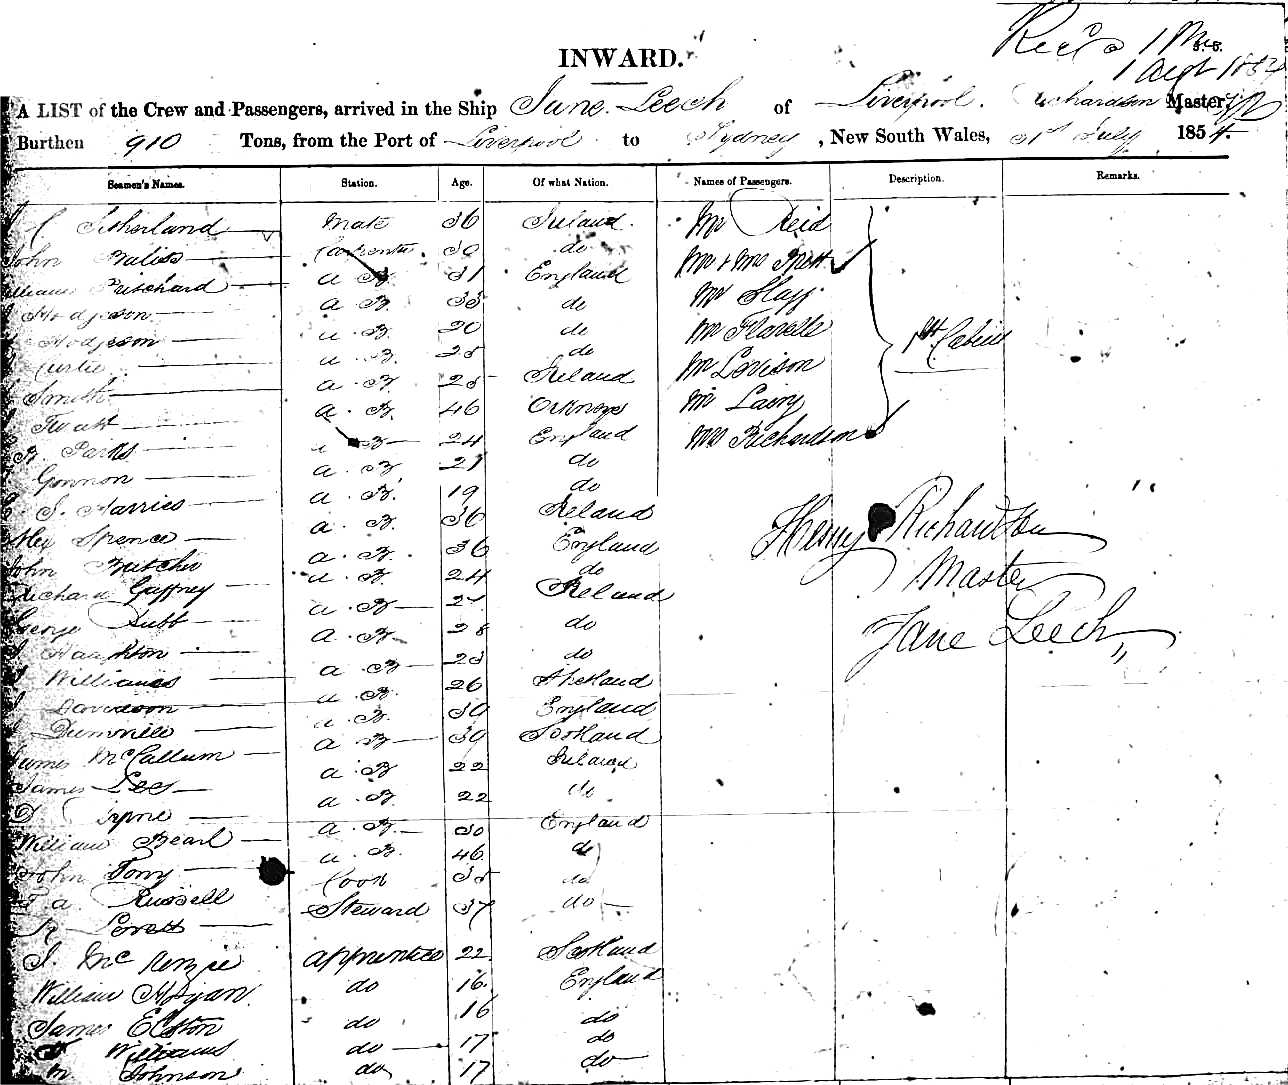 INWARD.
1 Augt 1854
A LIST of the Crew and Passengers, arrived in the Ship Jane Leech of Liverpool. Richardson Master,
Burthen 910 Tons, from the Port of Liverpool to Sydney, New South Wales, 31st July 1854.
Seamen's Names. Station. Age. Of what Nation. Names of Passengers. Description. Remarks.
Sutherland Mate 36 Ireland. Mr Reid
John Carpenter 30 do Mr & Mrs
William Pritchard a B. 31 England Mr
Hodgson a B. 33 do Mr Flavelle 1st Cabin
Hodgson a B. 20 do Mr Levison
Curtie a B. 25 do Mr
Smith a B. 25 Ireland Mrs Richardson
a B. 46 Orkneys
Parks a B 24 England
Gonnon a B. 21 do
S. Harries a B. 19 do
Alex Spence a B. 36 Ireland
John Butcher a B. 36 England
Richard Gaffney a B. 24 do
George Tubb a B 21 Ireland
a B. 28 do
Williams a B 23 do
Davidson a B. 26 Shetland
Dumville a B. 30 England
James McCallum a B 30 Scotland
James Lee a B 22 Ireland
a B. 22 do
William Pearl a B. 30 England
John a B. 46 do
Russell Cook 35 do
Steward 37 do
J. McKenzie apprentice 22 Scotland
William do 16 England
James Elston do 16 do
Williams do 17 do
M. Johnson do 17 do
Henry Richardson
Master
Jane Leech